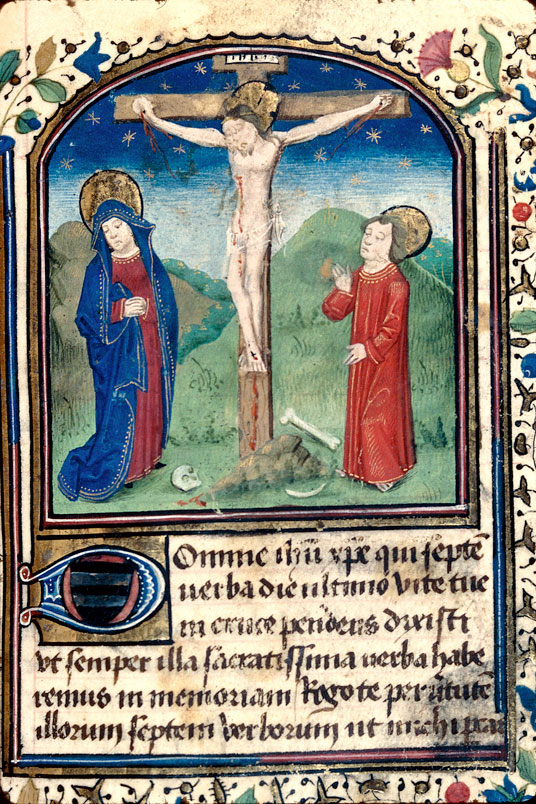 Domine ihu xpe qui septe
uerba die ultimo uite tue
in cruce pendens dixisti
ut semper illa sacratissima uerba habe
remus in memoriam Rogo te per uirtute
illorum septem verborum ut michi